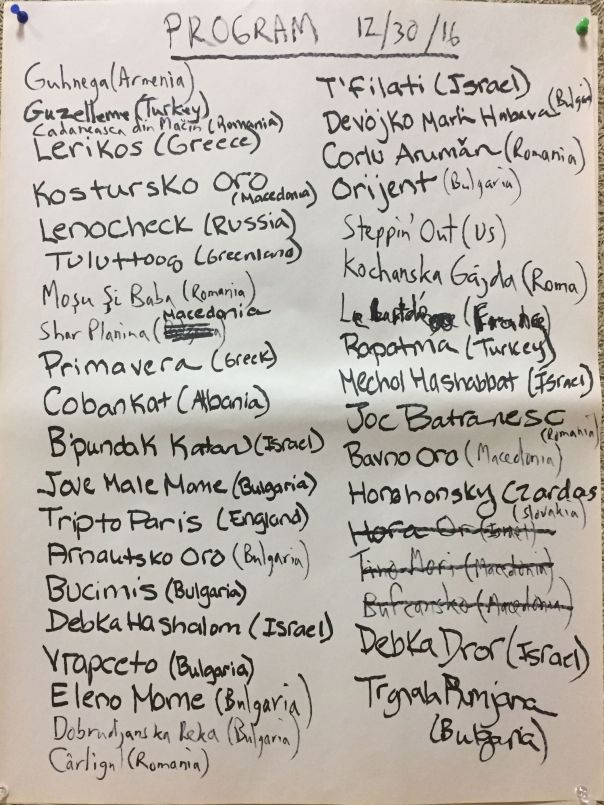 PROGRAM 12/30/16
Guhnega (Armenia)
Guzelleme (Turkey)
Cadaneasca din Măcin (Romania)
Lerikos (Greece)
Kostursko Oro
(Macedonia)
Lenocheck (Russia)
Tuluttoog (Greenland)
Moşu Şi Baba (Romania)
Macedonia
Shar Planina
Primavera (Greek)
Cobankat (Albania)
B'pundak Katan (Israel)
Jove Male Mome (Bulgaria)
Trip to Paris (England)
Arnautsko Oro (Bulgaria)
Bucimis (Bulgaria)
Debka Hashalom (Israel)
Vrapceto (Bulgaria)
Eleno Mome (Bulgaria)
Dobrudjanska Reka (Bulgaria)
Cârligul (Romania)
T'filati (Israel)
Devojko Mari Hubava (Bulgaria)
Corlu Arumăn (Romania)
Orijent (Bulgaria)
Steppin' Out (US)
Kochanska Gájda (Roma)
La (France)
Rapatma (Turkey)
Mechol Hashabbat (Israel)
Joc Batranesc
(Romania)
Bavno Oro (Macedonia)
Horehonsky Czardas
(Slovakia)
Hora Or (Israel)
Tino Mori (Macedonia)
Bufcansko (Macedonia)
Debka Dror (Israel)
Trgnala Rumjana
(Bulgaria)